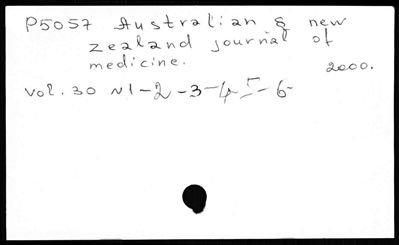 P5057 Australian & new
zealand journal of
medicine. 2000.
vol. 30 N1-2-3-4-5-6-